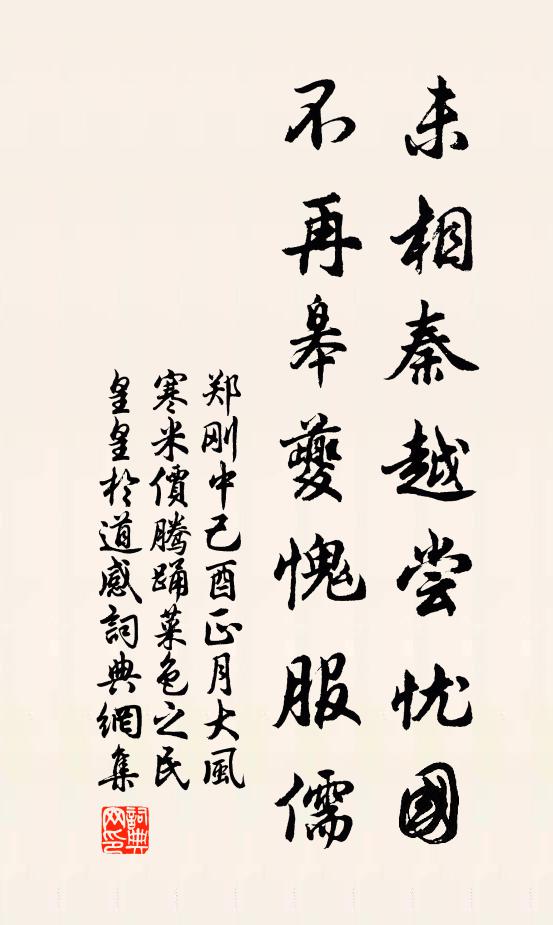 未相秦越尝忧國
不再皋夔愧服儒
郑刚中己酉正月大風
寒米價腾踊菜色之民
皇皇於道感詞典網集
詞典網印